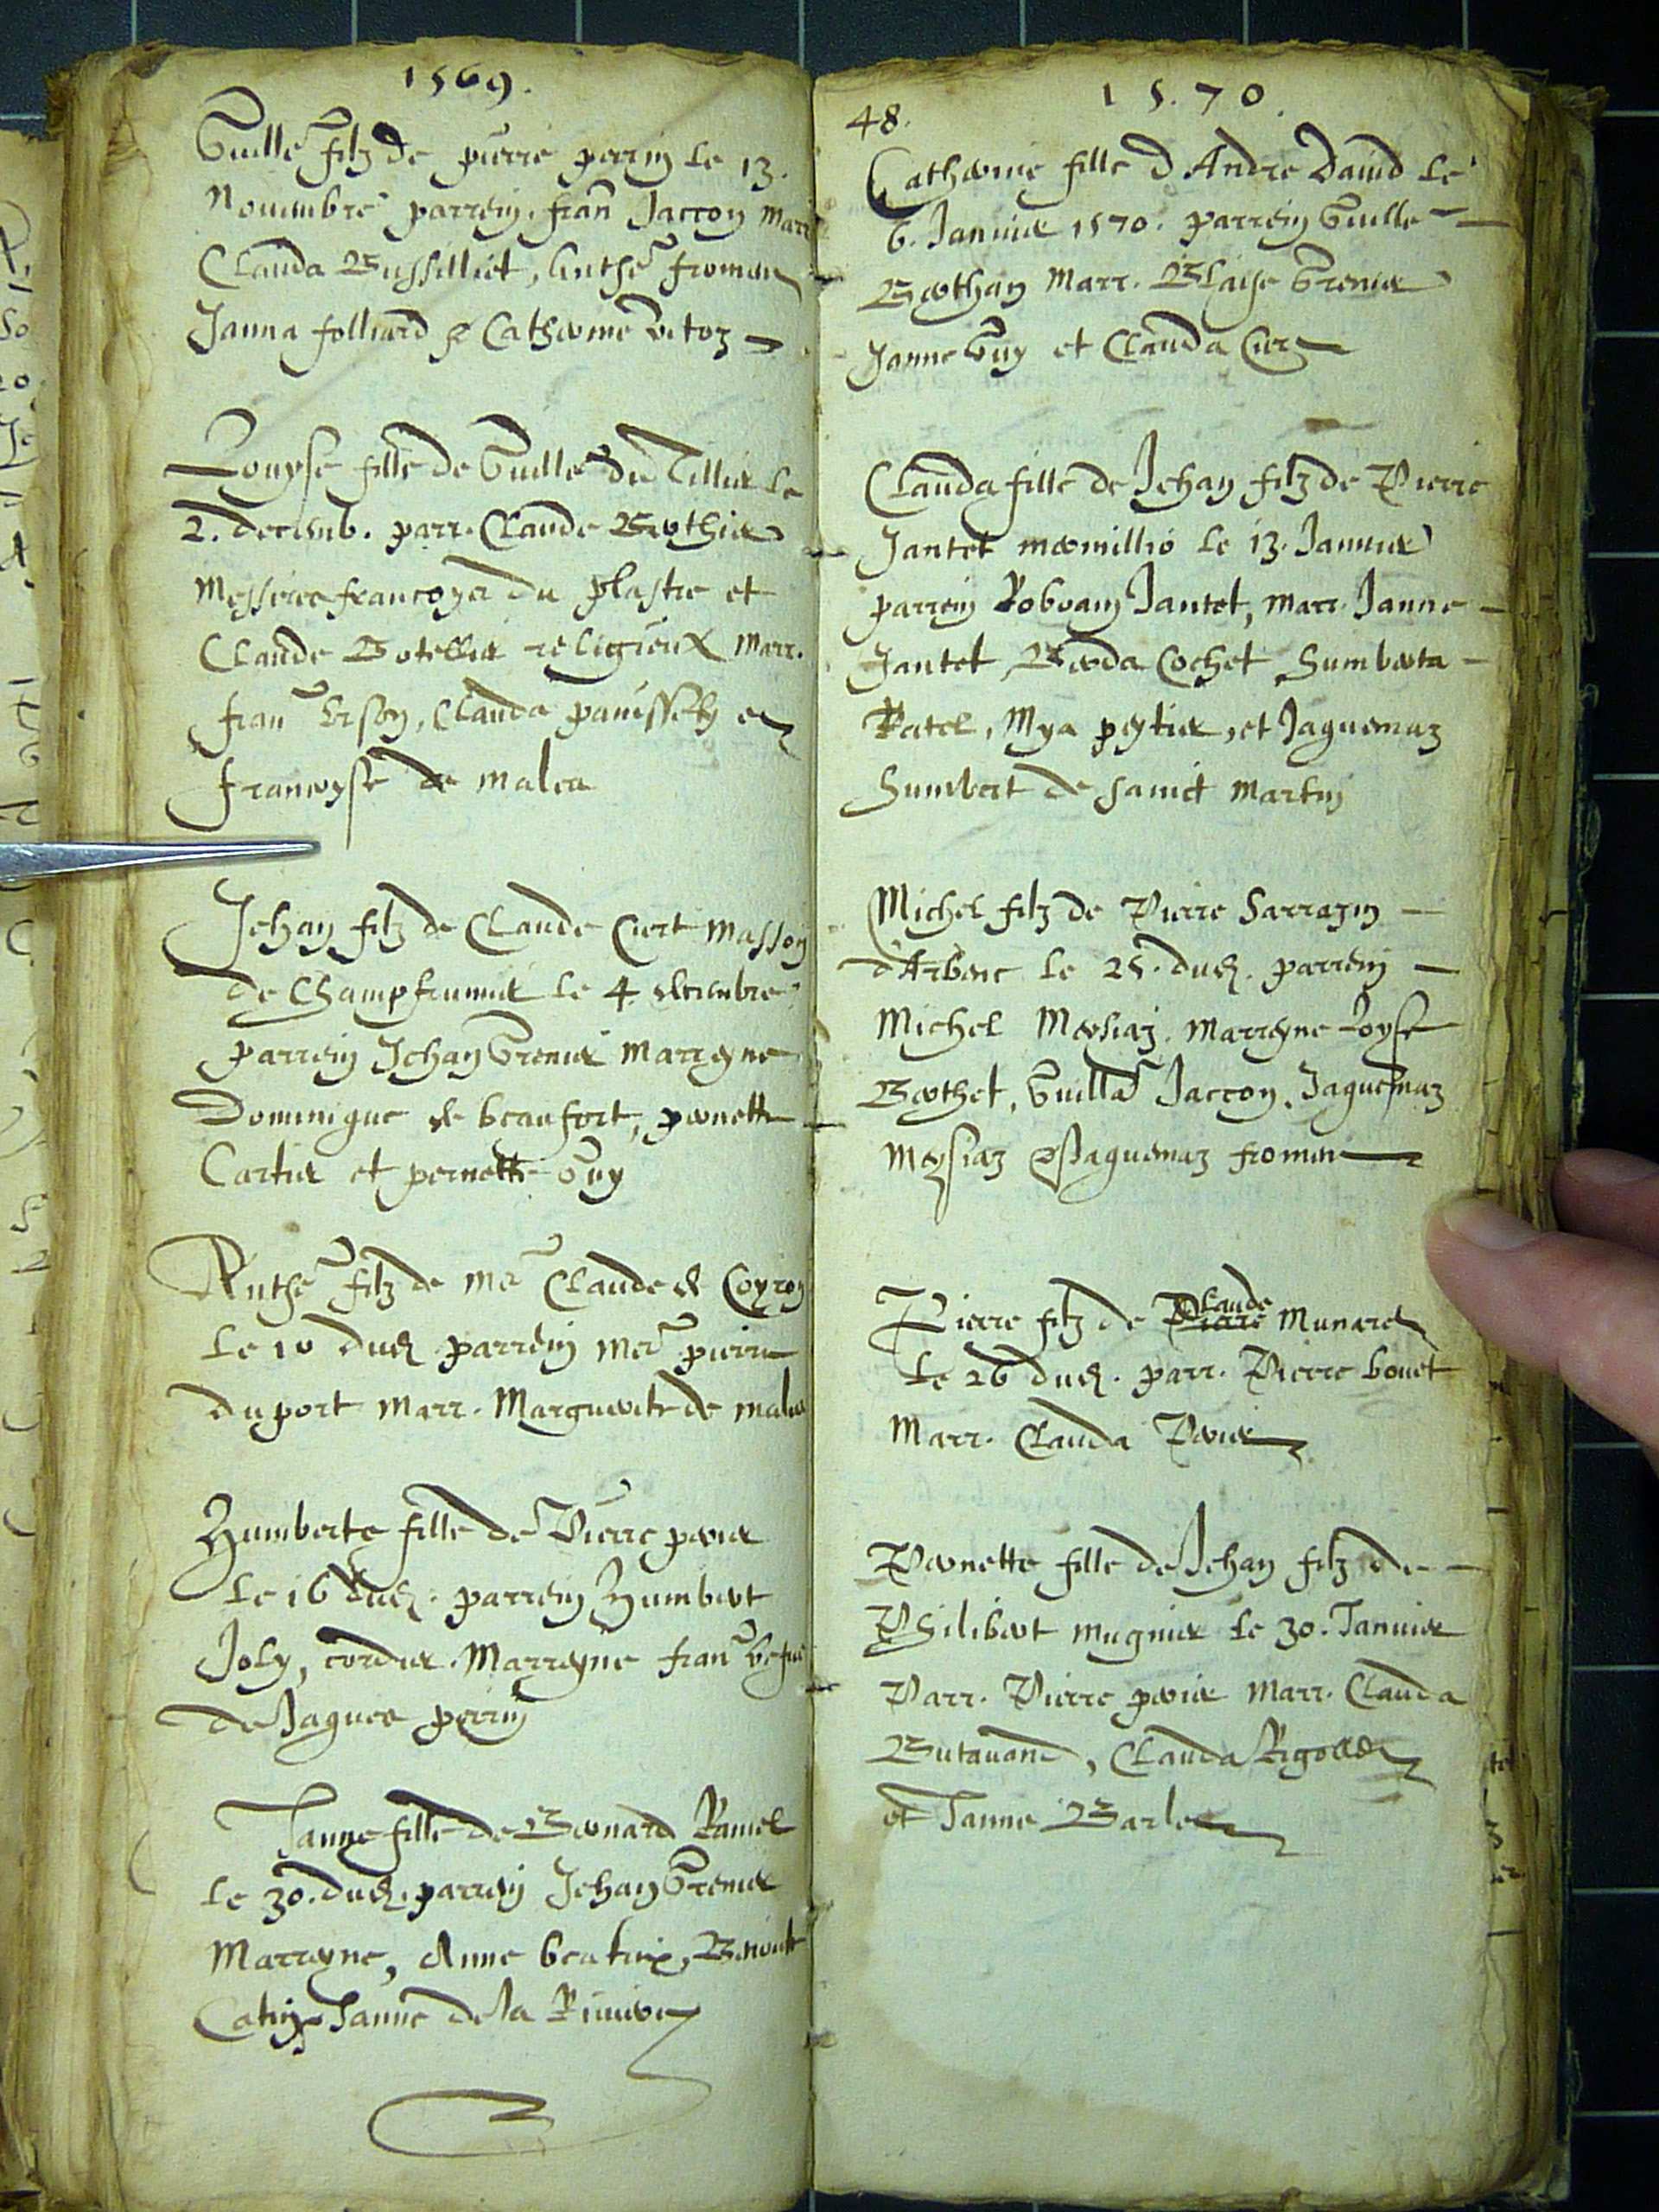 1569.
Guille filz de pierre perrin le 13.
Nouembre parrein. fran Jaccon Marr
Clauda Bussilliet, Anthe froment
Janna folliard & Catherine
Louyse fille de Guille du Tillier le
2. decemb. parr. Claude Berthier
Messires francoys du plastre et
Claude Botellier religieux Marr.
fran Urson, Clauda et
francoyse de malra
Jehan filz de Claude Cuert Masson
de Champfrumier le 4. decembre
parrein Jehan Grenier Marreyne
Dominique de beaufort, pernette
Cartier et pernette Guy
Anthe filz de me Claude de Coyron
Le 10 dud. parrein Mer pierre
duport Marr. Marguerite de
Humberte fille de Pierre perier
Le 16 dud. parrein Humbert
Joly, cordier. Marreyne fran
de Jaques perrin
Janne fille de Bernard Ramel
Le 30. dud. parrein Jehan Grenier
Marreyne, Anne beatrix, Benoite
Catin Janne de la Riuiere
48.
15.70.
Catherine fille d Andre Dauid Le
6. Januier 1570. parrein Guille
Berthan Marr. Blaise Grenier
Janne Guy et Clauda
Clauda fille de Jehan filz de Pierre
Jantet mermillio le 13. Januier
parrein Roboam Jantet, Marr. Janne
Jantet, Cochet humberta
Patel, Mya peytier, et Jaquemaz
humbert de sainct Martin
Michel filz de Pierre Sarrazin
d'Arbenc le 25. dud. parrein
Michel Mersiaz. Marreyne Loyse
Berthet, Guilla Jaccon, Jaquemaz
Mersiaz & Jaquemaz froment
Pierre filz de Claude Munaret
Le 26 dud. parr. Pierre bouet
Marr. Clauda Perier
Pernette fille de Jehan filz de
Philibert mugnier le 30. Januier
Parr. Pierre perier Marr. Clauda
Butauand, Clauda Rigollet
et Janne Barlet